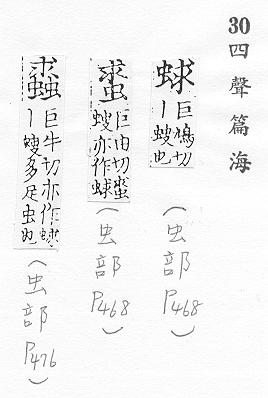 30四聲篇海
蛷
巨鳩切
丨螋也
(虫部P468)
巨由切
螋亦作蛷
(虫部P468)
巨牛切亦作蛷
丨螋多足虫也
(虫部P476)